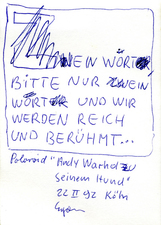 EIN WÖRT
BITTE NUR EIN
WÖRT UND WIR
WERDEN REICH
UND BERÜHMT...
Polaroid "Andy Warhol zu
seinem Hund"
22 II 92 Köln